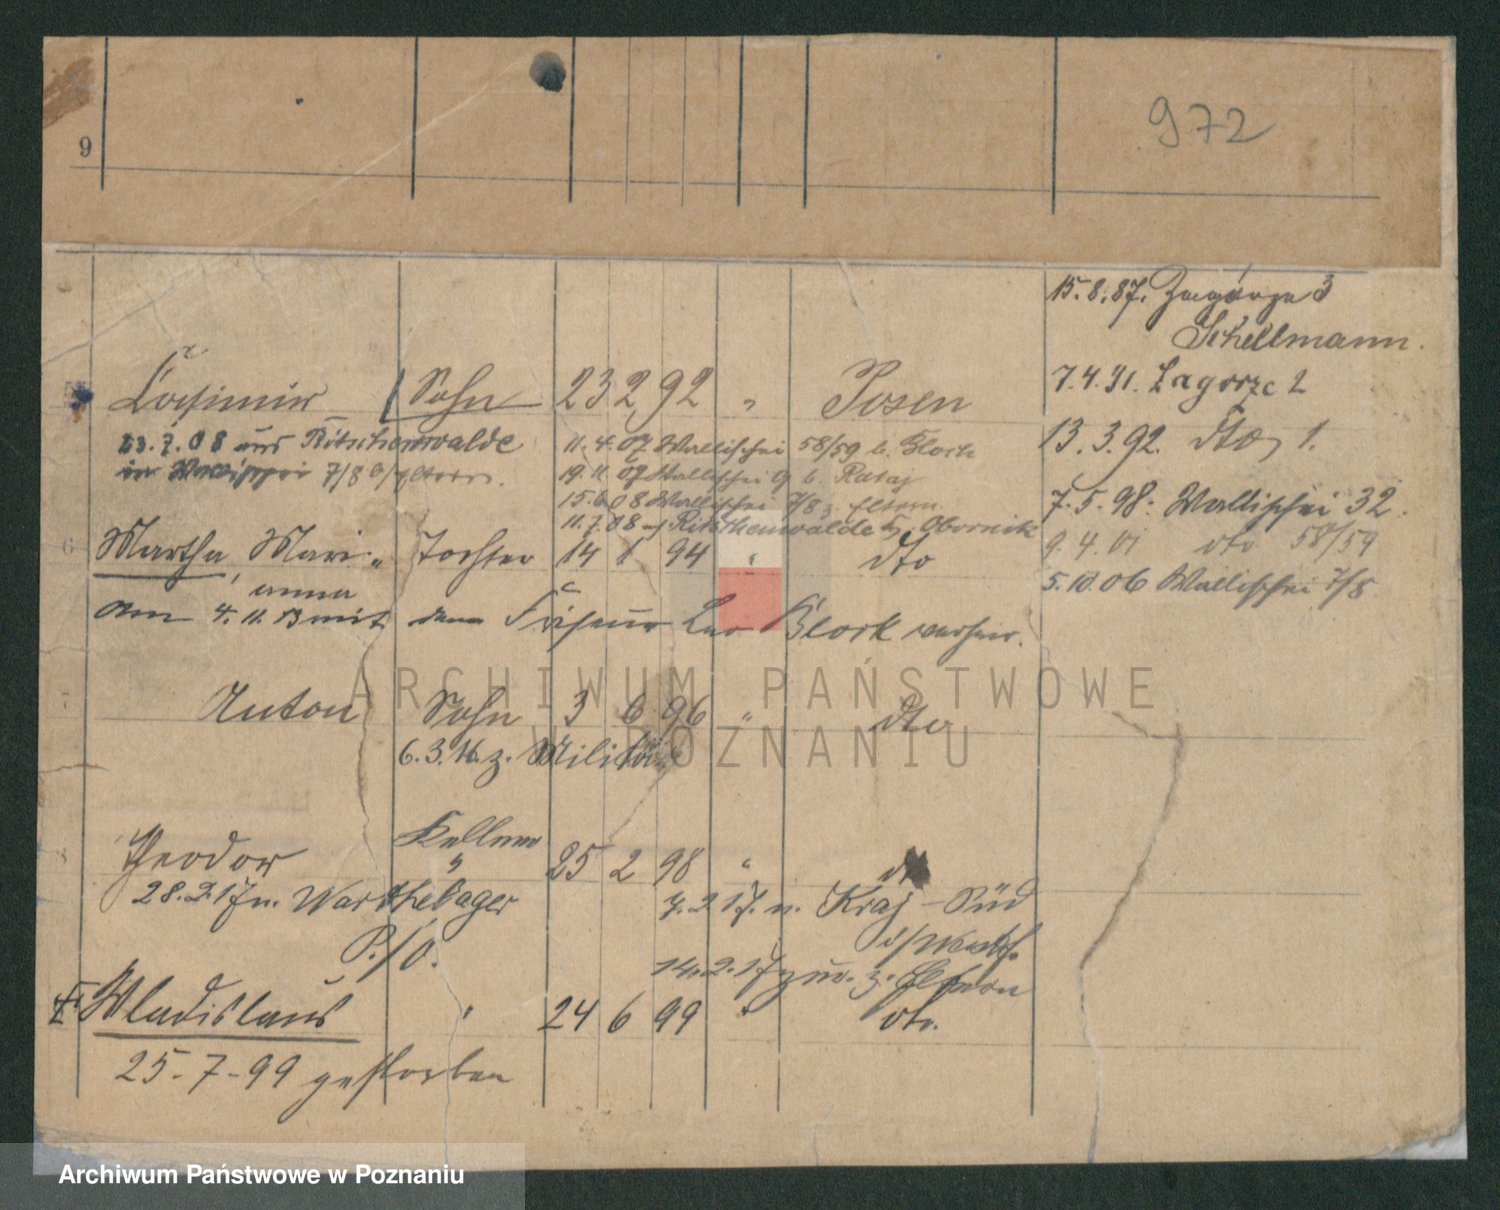 972
9
15.8.87. Zagórze 3
Schellmann.
7.4.91. Zagorze 2
Casimir Sohn 23 2 92 " Posen
13.3.92. dto 1.
23.7.08 aus Ritschenwalde
11.4.07 Wallischei 58/59 b. Block
in Wallischei 7/8 b/Eltern.
19.11.07 Wallischei 9 b. Rataj
15.6.08 Wallischei 7/8 z. Eltern
7.5.98. Wallischei 32.
11.7.08 n/ Ritschenwalde Obornik
Martha, Mari- Tochter 14 1 94 " dto
anna
9.4.01 dto 58/59
5.10.06 Wallischei 7/8
am 4.11.13 mit dem Friseur Leo Block verheir.
Anton Sohn 3 6 96 " dto
6.3.16. z. Militär
Theodor Kellner " 25 2 98 " dto
28.2.17 n. Warthelager
7.2.17. n. Kraj-Süd
P./O.
i/Westf.
14.2.17 zur. z. Eltern
Wladislaus " 24 6 99 " dto.
25-7-99 gestorben
ARCHIWUM PAŃSTWOWE
W POZNANIU
Archiwum Państwowe w Poznaniu